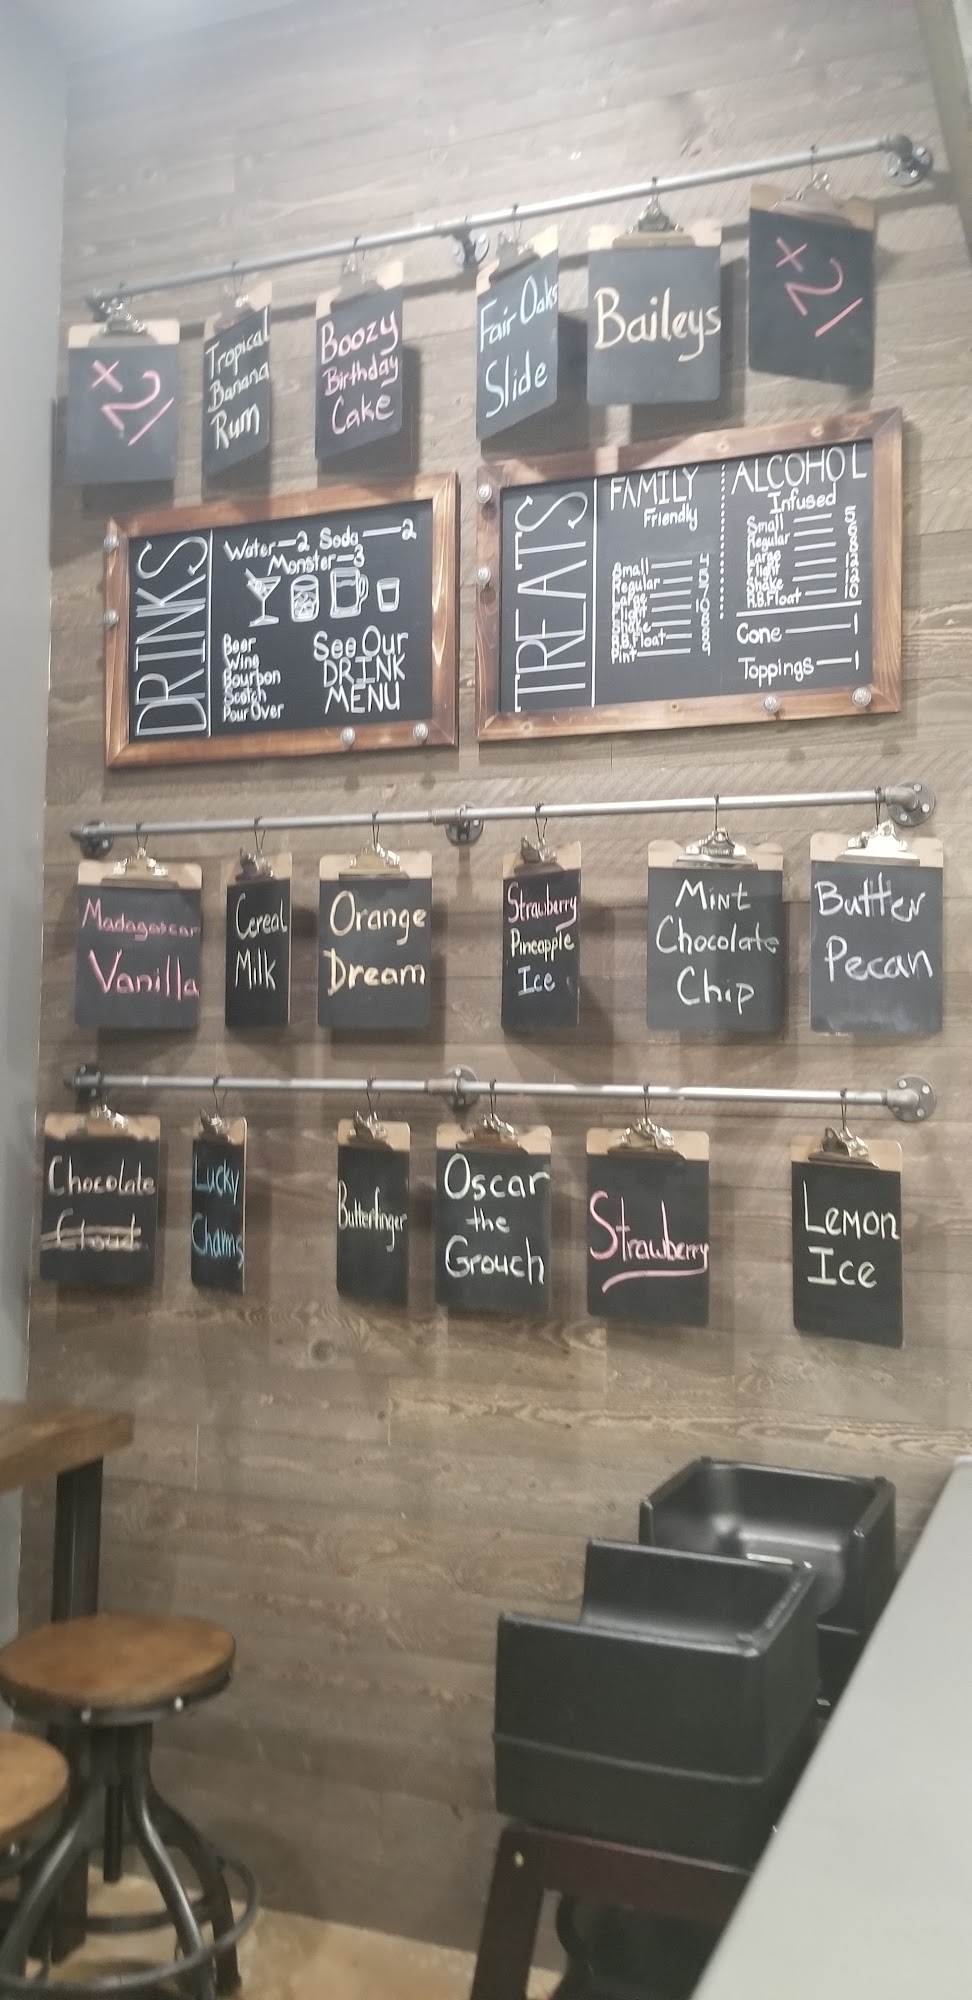 21
+
Tropical
Banana
Rum
Boozy
Birthday
Cake
Fair Oaks
Slide
Baileys
21
+
DRINKS
Water—2 Soda—2
Monster—3
Beer
Wine
Bourbon
Scotch
Pour Over
See Our
DRINK
MENU
TREATS
FAMILY
Friendly
Small
Regular
Large
Flight
Shake
R.B.Float
Pint
ALCOHOL
Infused
Small
Regular
Large
Flight
Shake
R.B.Float
Cone—1
Toppings—1
Madagascar
Vanilla
Cereal
Milk
Orange
Dream
Strawberry
Pineapple
Ice
Mint
Chocolate
Chip
Butter
Pecan
Chocolate
Cloud
Lucky
Charms
Butterfinger
Oscar
the
Grouch
Strawberry
Lemon
Ice